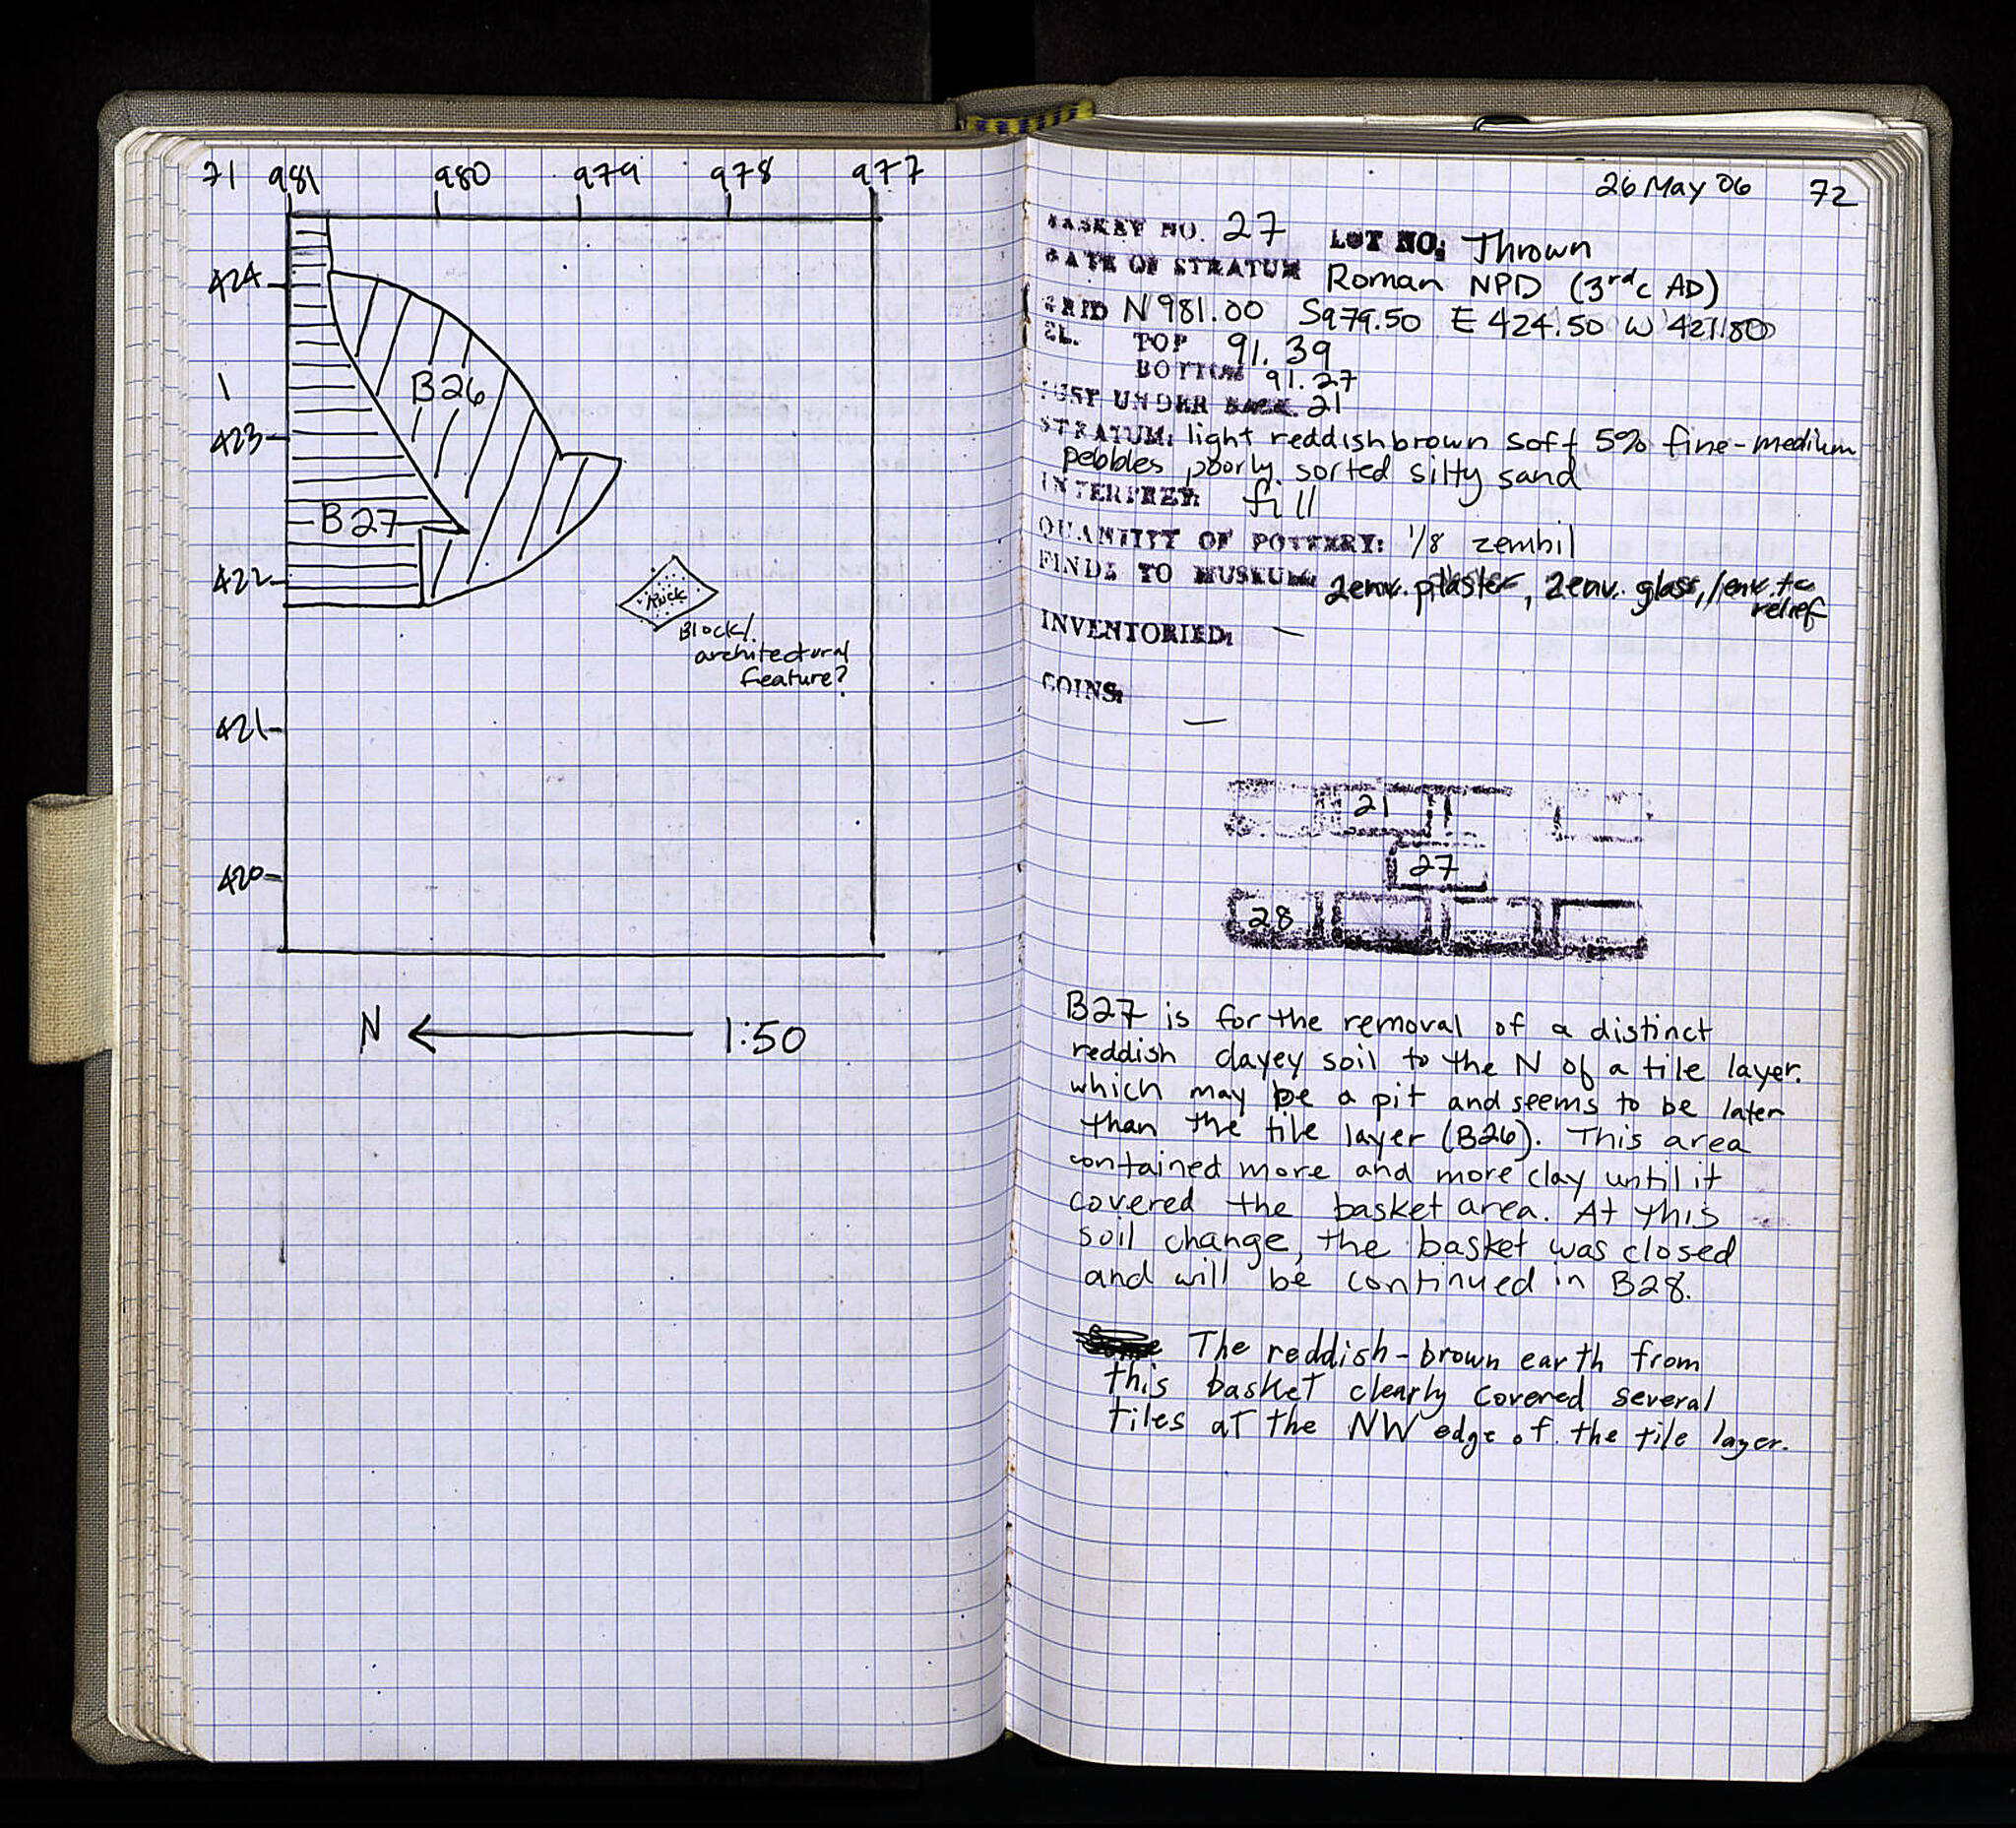 71 981 980 979 978 977
424
B26
423
B27
422
Block/
architectural
feature?
421
420
N 1:50
26 May 06 72
BASKET NO. 27 LOT NO: Thrown
DATE OF STRATUM Roman NPD (3rd c AD)
GRID N 981.00 S979.50 E 424.50 W 421.80
EL. TOP 91.39
BOTTOM 91.27
JUST UNDER BASK. 21
STRATUM: light reddish brown soft 5% fine-medium
pebbles poorly sorted silty sand
INTERPRET: fill
QUANTITY OF POTTERY: 1/8 zembil
FINDS TO MUSEUM: 2env. plaster, 2env. glass, 1env. tc
relief
INVENTORIED: —
COINS:
—
21
27
28
B27 is for the removal of a distinct
reddish clayey soil to the N of a tile layer.
which may be a pit and seems to be later
than the tile layer (B26). This area
contained more and more clay until it
covered the basket area. At this
soil change, the basket was closed
and will be continued in B28.
The reddish-brown earth from
this basket clearly covered several
tiles at the NW edge of the tile layer.